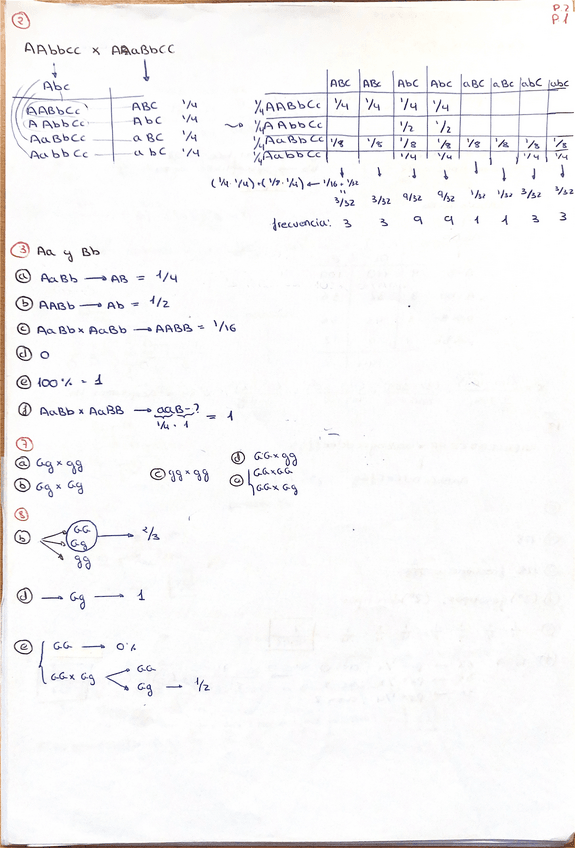 ②
P.2
P1
AAbbcc x AAaBbCC
Abc
AABbCc ABC 1/4
AAbbCc AbC 1/4
AaBbCc aBC 1/4
AabbCc abC 1/4
ABC ABc AbC Abc aBC aBc abC abc
1/4 AABbCc 1/4 1/4 1/4 1/4
1/4 AAbbCc 1/2 1/2
1/4 AaBbCc 1/8 1/8 1/8 1/8 1/8 1/8 1/8 1/8
1/4 AabbCc 1/4 1/4 1/4 1/4
(1/4 · 1/4) + (1/8 · 1/4) ← 1/16 + 1/32
"
3/32 3/32 9/32 9/32 1/32 1/32 3/32 3/32
frecuencia: 3 3 9 9 1 1 3 3
③ Aa y Bb
ⓐ AaBb → AB = 1/4
ⓑ AABb → Ab = 1/2
ⓒ AaBb x AaBb → AABB = 1/16
ⓓ 0
ⓔ 100% = 1
ⓕ AaBb x AaBB → aaB-?
1/4 · 1 = 1
⑦
ⓐ Gg x gg
ⓑ Gg x Gg
ⓒ gg x gg
ⓓ GG x gg
ⓔ GG x GG
GG x Gg
⑧
ⓑ GG
Gg → 2/3
gg
ⓓ → Gg → 1
ⓔ GG → 0%
GG x Gg → GG
Gg → 1/2